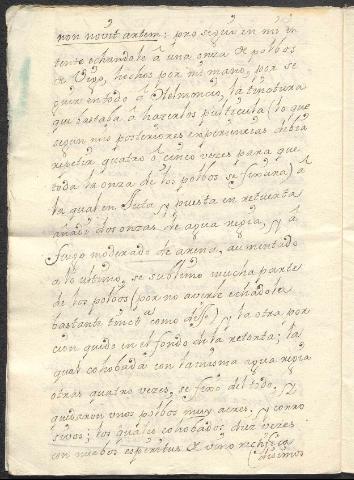 non novit artem; proseguí en mi in
tento echandole à una onza de polbos
de Vigo, hechos por mi mano, por se
guir en todo à Helmoncio, la tinctura
que bastaba à hazerlos pulticula (lo que
segun mis posteriores experiencias debia
repetir quatro ò cinco vezes para que
toda la onza de los polbos se fixara) à
la qual en Juta, y puesta en retuerta
añadi dos onzas de agua regia, y à
fuego moderado de arena, aumentado
a lo ultimo, se sublimò mucha parte
de los polbos (por no averle echadole
bastante tinctª como dije) y la otra por
cion quedò en el fondo de la retorta; la
qual cohobada con la misma agua regia
otras quatro vezes, se fixò del todo, y
quedaron unos polbos muy acres, y corro
sivos; los quales cohobados diez vezes
con nuebos espiritus de vino rectifica
disimos